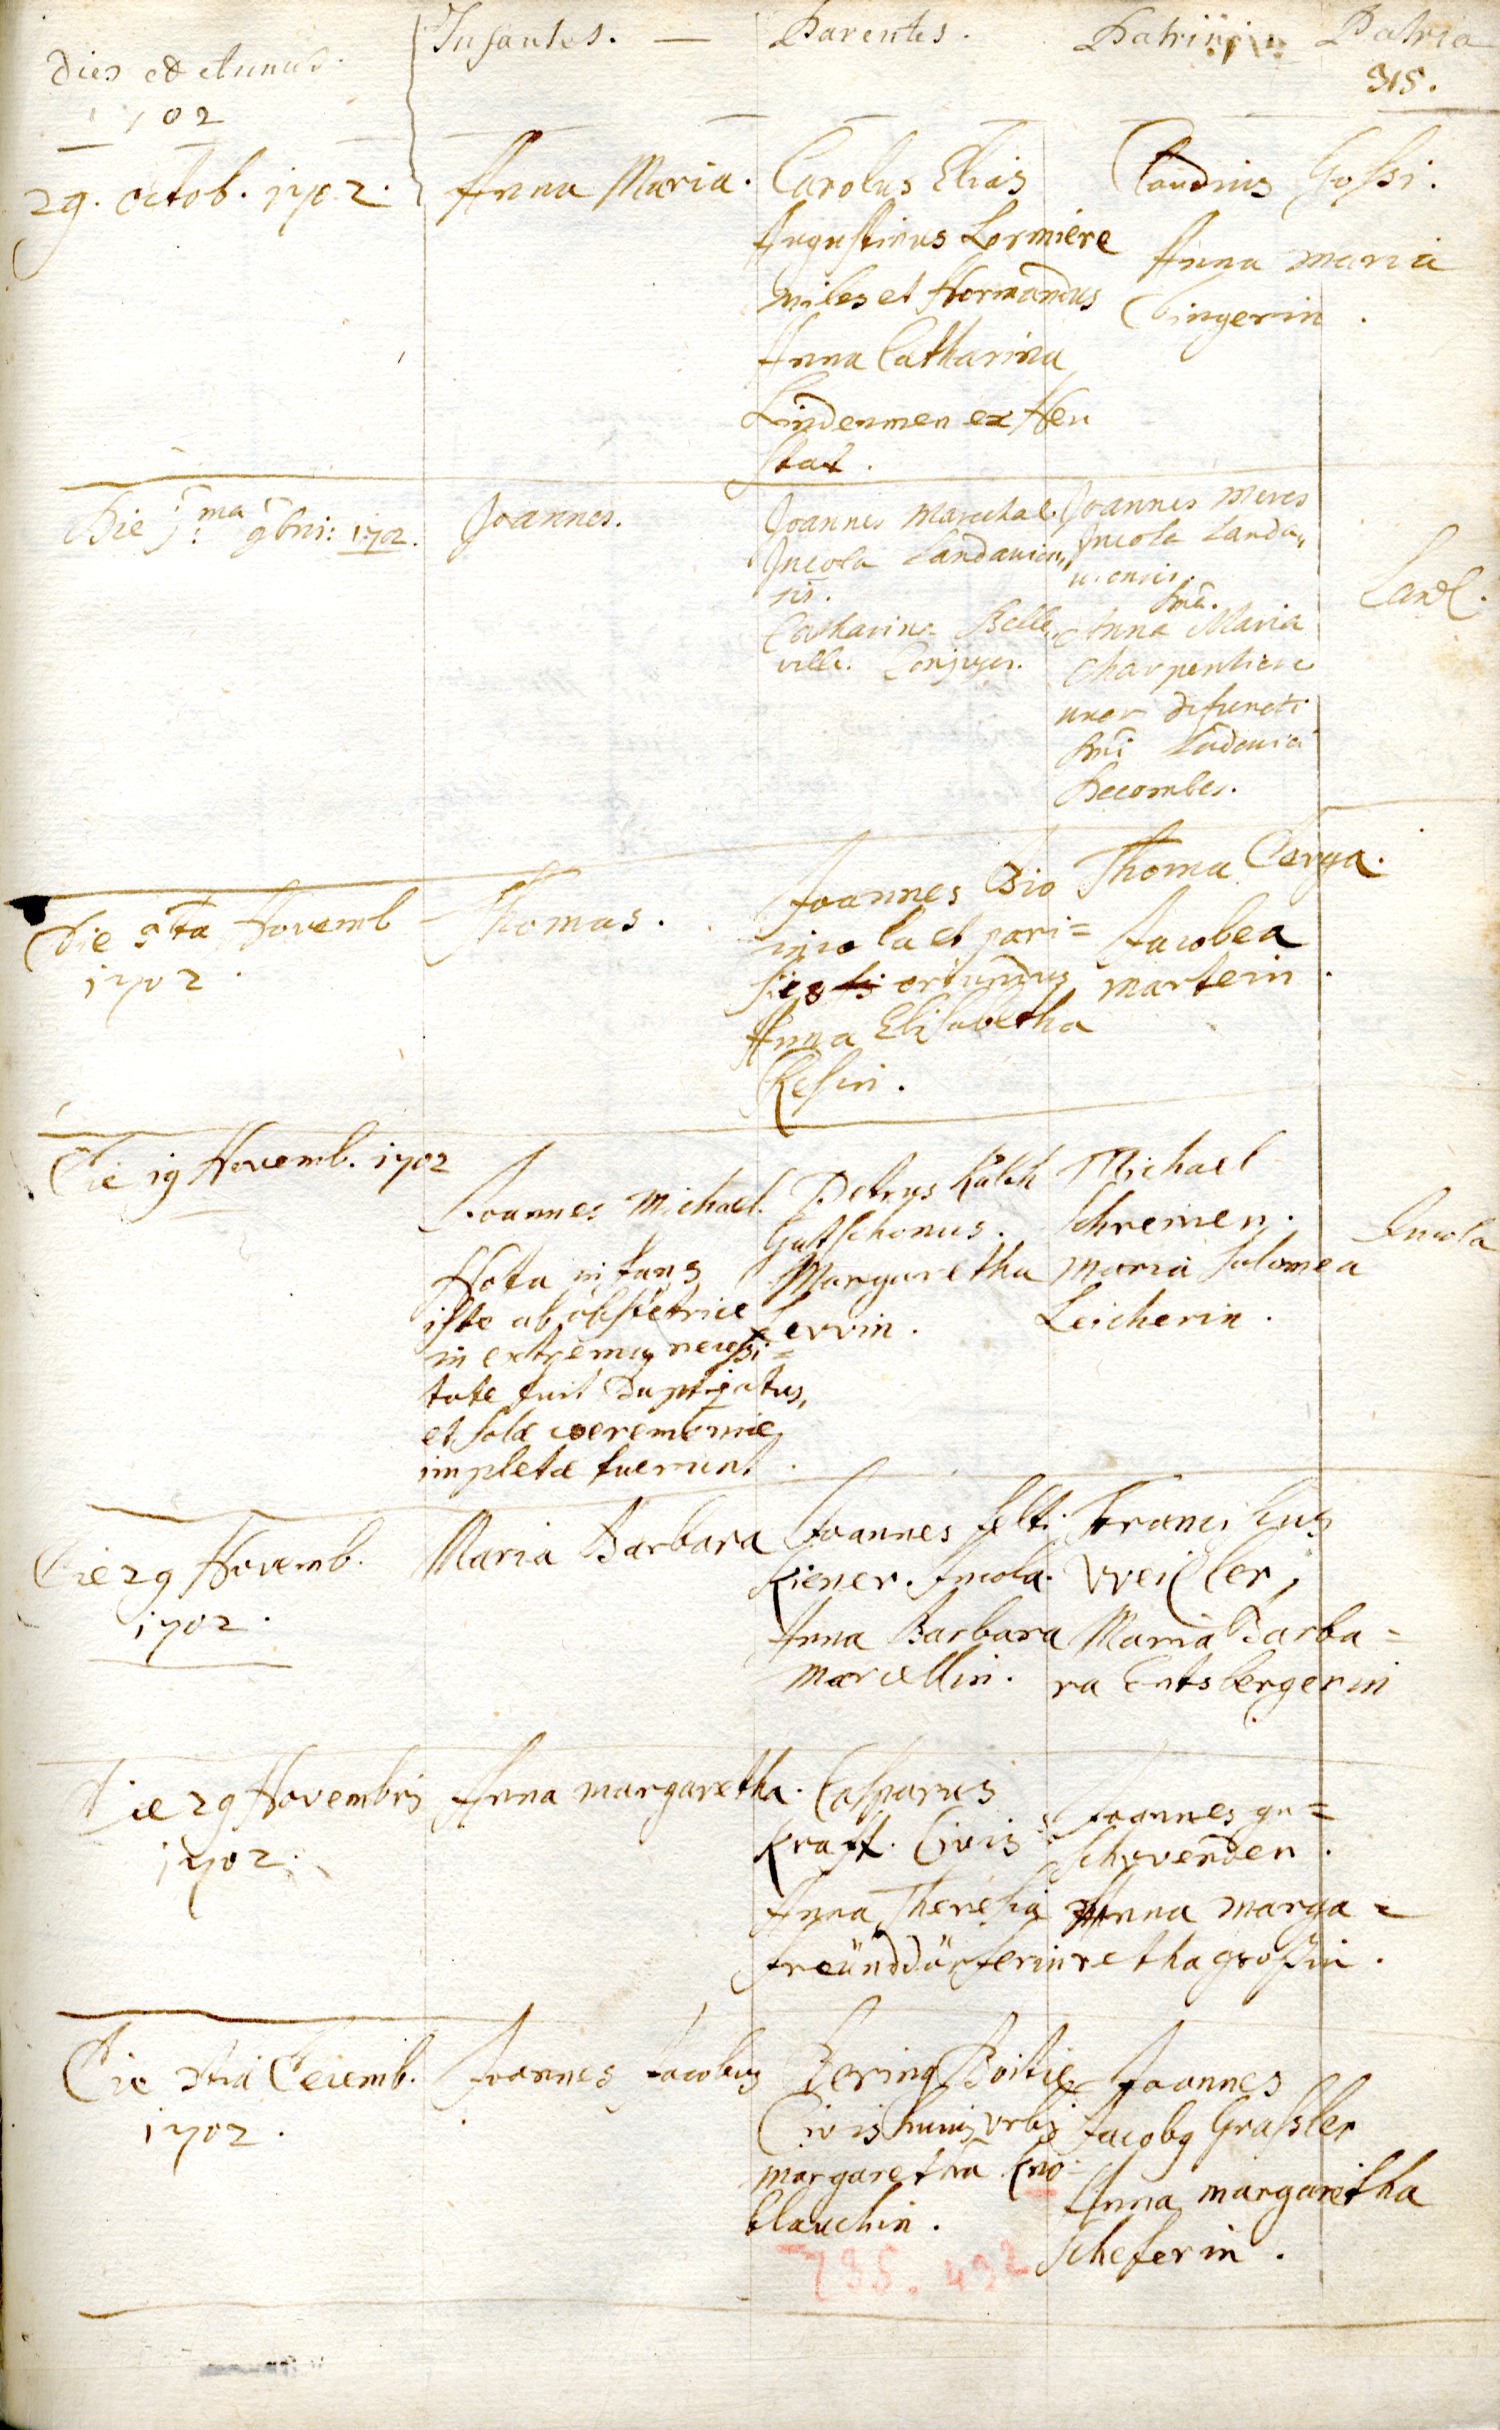 Dies et Annus.
Infantes. — Parentes. Patrini Patria
1702
315.
29. octob. 1702.
Anna Maria.
Carolus Elias
Augustinus Lormiere
miles et Normandus
Anna Catharina
Lindenmen ex Neu
stat.
Claudius Gossi.
Anna maria
Singerin.
Die 1.ma 9bris: 1702.
Joannes.
Joannes Marechal.
Incola Landavien„
sis.
Catharina Belle„
ville. Conjuges.
Joannes Meres
Incola Landa„
viensis.
Dna.
Anna Maria
Charpentiere
uxor defuncti
Dni Ludovici
Decombes.
Land.
Die 5ta Novemb
1702.
Thomas.
Joannes Bio
incola et pari=
siis oriundus
Anna Elisabetha
Resin.
Thoma Cerga.
Jacobea
martein.
Die 19 Novemb. 1702
Joannes Michael.
Nota infans
iste ab obstetrice
in extrema necessi=
tate fuit Baptizatus,
et solæ coeremoniæ
impletæ fuerunt.
Petrus Kålch
Gutschonus.
Margaretha
Lervin.
Michael
Schreinen.
maria Salomea
Leicherin.
Incola
Die 29 Novemb.
1702.
Maria Barbara
Joannes felti
Kiener. Incola.
Anna Barbara
marcellin.
Franciscus
Weisler,
Maria Barba=
ra Entsbergerin
Die 29 Novembris
1702.
Anna margaretha.
Casparus
Kraft. Civis
Anna Theresia
freünddörferin
Joannes gu=
schwenden.
Anna marga=
retha grossin.
Die 3tia Decemb.
1702.
Joannes Jacobus
Bering Boitie
Civis huius urbis
margaretha Kno=
blauchin.
Joannes
Jacobus Grassler
Anna margaretha
Scheferin.
735. 432